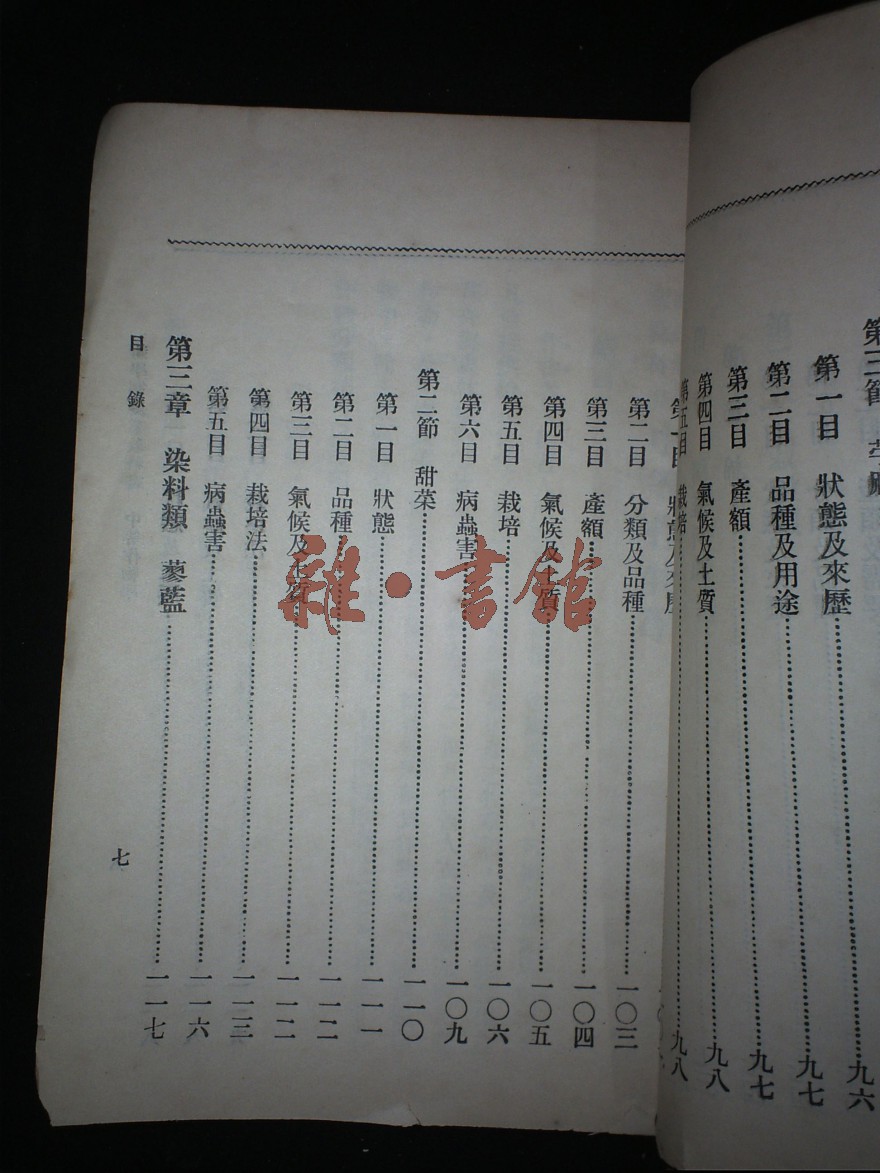 第三節
第一目 狀態及來歷……九六
第二目 品種及用途……九七
第三目 產額……九七
第四目 氣候及土質……九八
第五目 栽培……九八
第一目 狀態及來歷
第二目 分類及品種……一〇三
第三目 產額……一〇四
第四目 氣候及土質……一〇五
第五目 栽培……一〇六
第六目 病蟲害……一〇九
第二節 甜菜……一一〇
第一目 狀態……一一一
第二目 品種……一一二
第三目 氣候及土質……一一二
第四目 栽培法……一一三
第五目 病蟲害……一一六
第三章 染料類 蓼藍……一一七
目錄 七
雜·書館